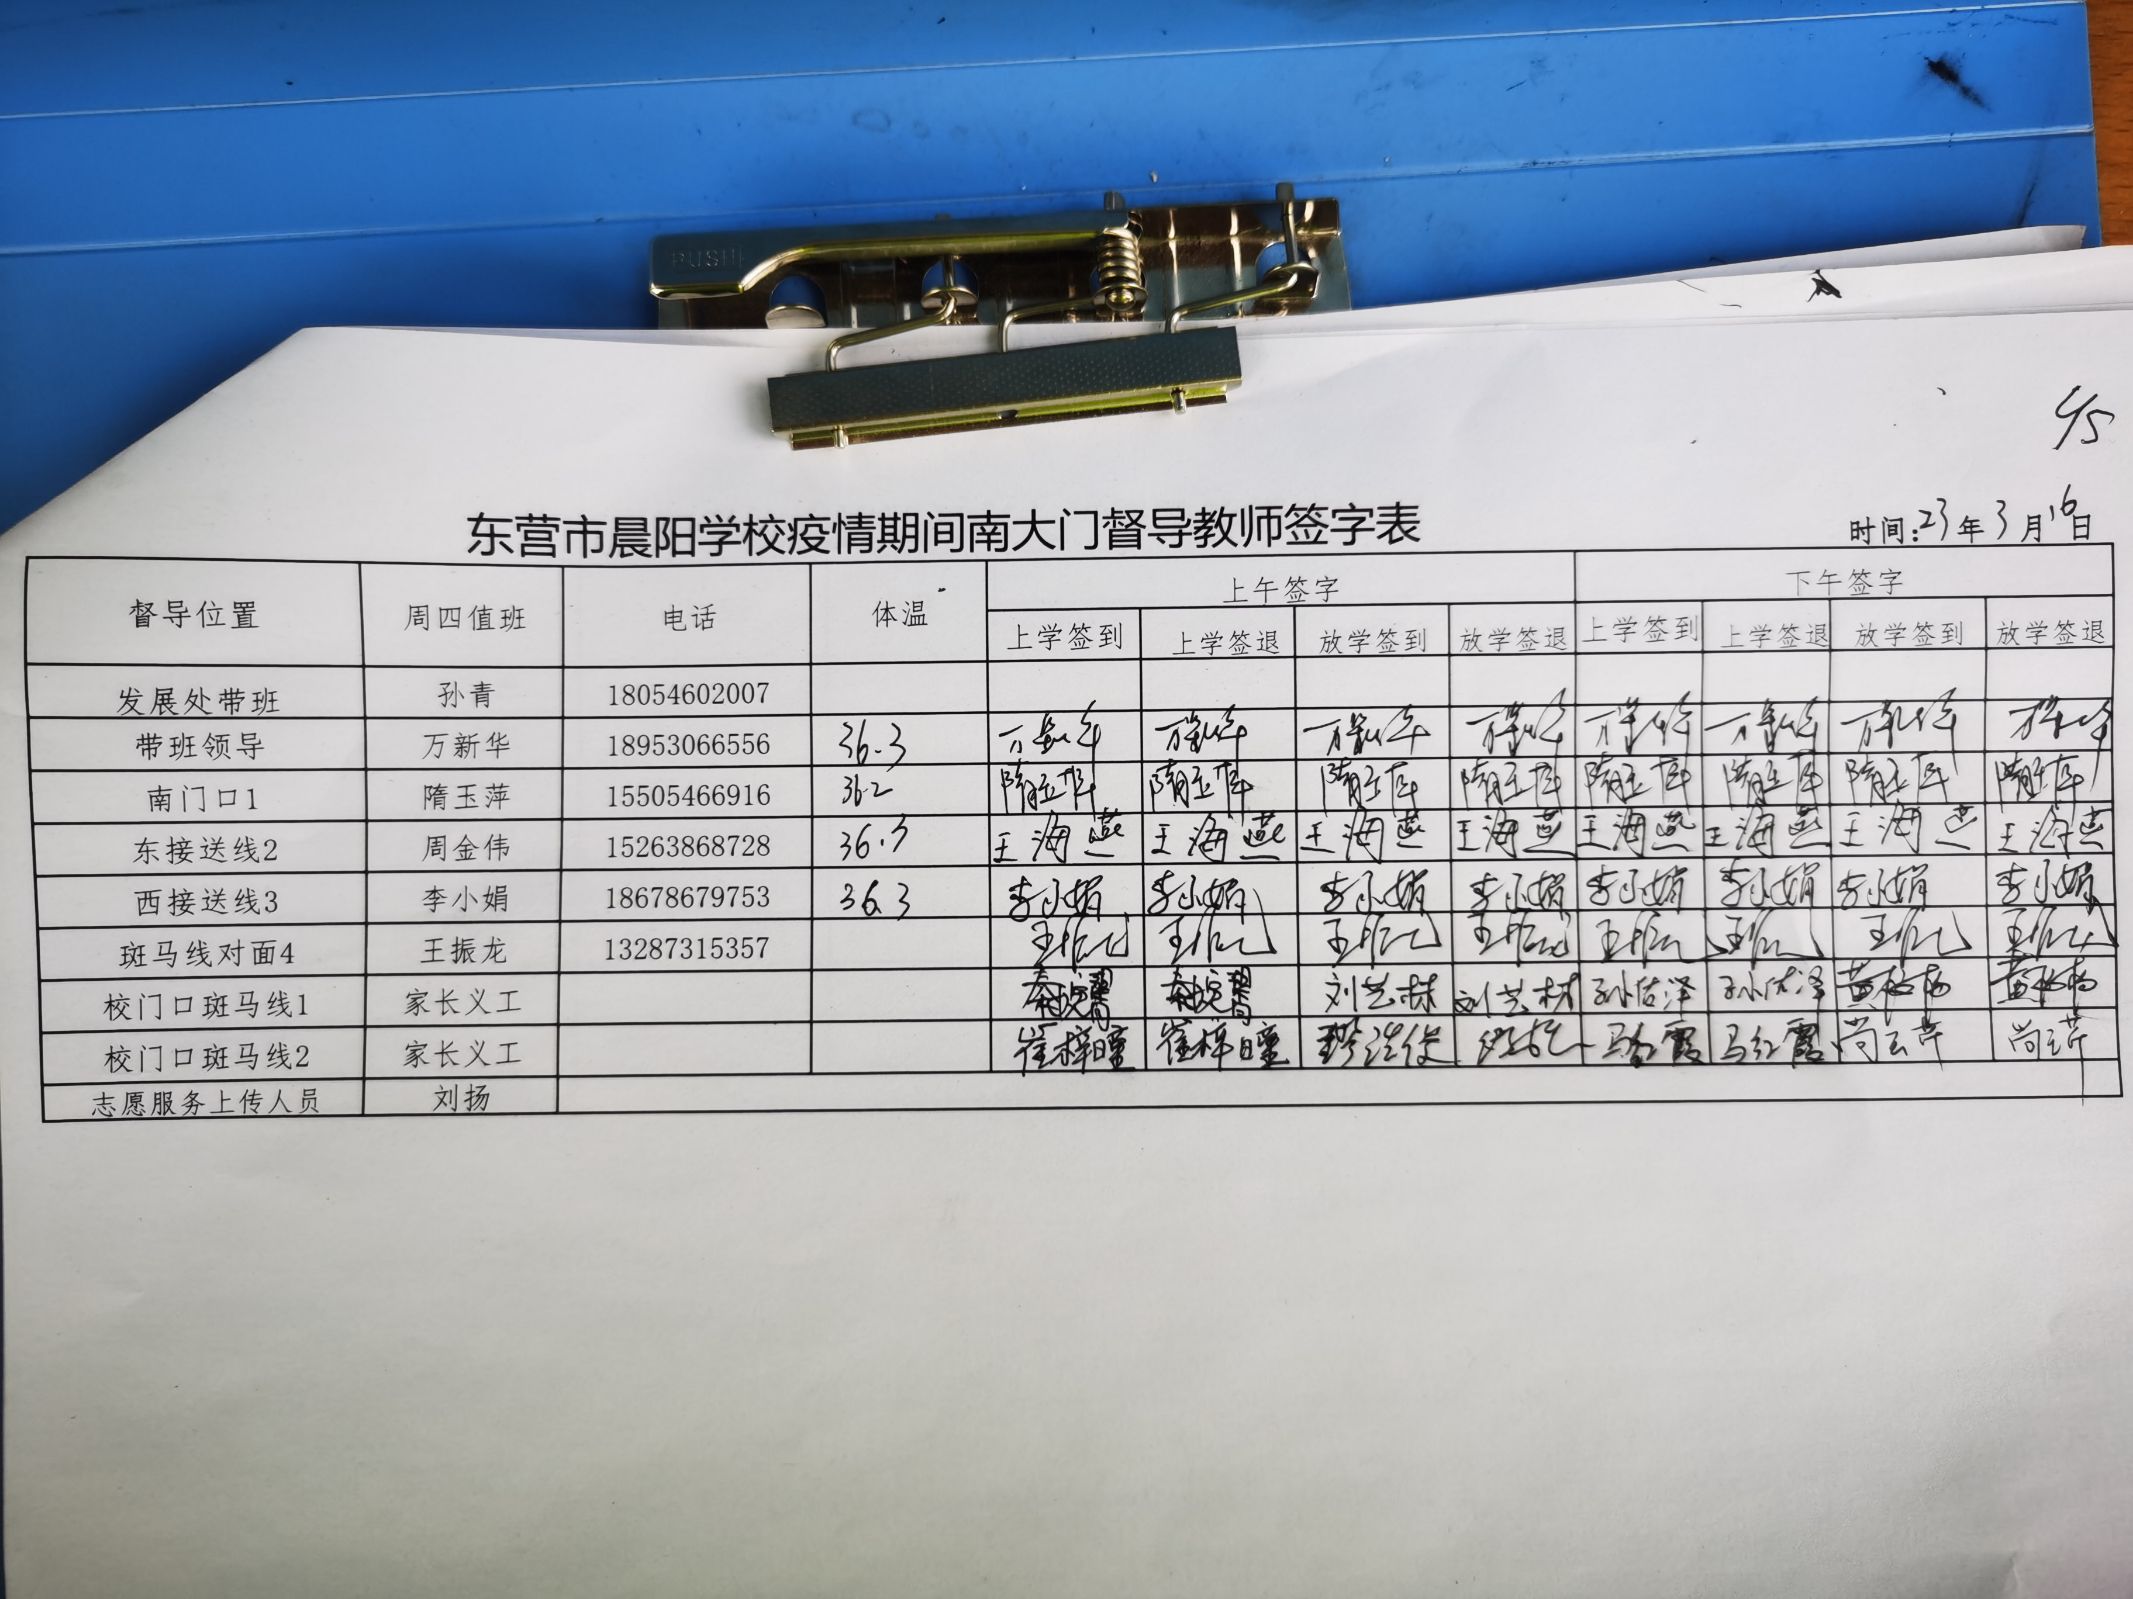 PUSH
4/5
东营市晨阳学校疫情期间南大门督导教师签字表
时间:23年3月16日
督导位置 周四值班 电话 体温 上午签字 下午签字
上学签到 上学签退 放学签到 放学签退 上学签到 上学签退 放学签到 放学签退
发展处带班 孙青 18054602007
带班领导 万新华 18953066556 36.3 万新华 万新华 万新华 万新华 万新华 万新华 万新华 万新华
南门口1 隋玉萍 15505466916 36.2 隋玉萍 隋玉萍 隋玉萍 隋玉萍 隋玉萍 隋玉萍 隋玉萍 隋玉萍
东接送线2 周金伟 15263868728 36.3 王海燕 王海燕 王海燕 王海燕 王海燕 王海燕 王海燕 王海燕
西接送线3 李小娟 18678679753 36.3 李小娟 李小娟 李小娟 李小娟 李小娟 李小娟 李小娟 李小娟
斑马线对面4 王振龙 13287315357 王振龙 王振龙 王振龙 王振龙 王振龙 王振龙 王振龙 王振龙
校门口斑马线1 家长义工 刘芸林 刘芸林 孙佑泽 孙佑泽
校门口斑马线2 家长义工 崔梓曈 崔梓曈 马红霞 马红霞 尚云芹 尚云芹
志愿服务上传人员 刘扬